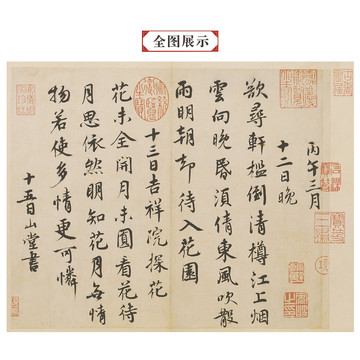 全图展示
丙午三月
十二日晚
欲尋軒檻倒清樽江上烟
雲向晚昏須倩東風吹散
雨明朝却待入花園
十三日吉祥院探花
花未全開月未圓看花待
月思依然明知花月無情
物若使多情更可憐
十五日山堂書